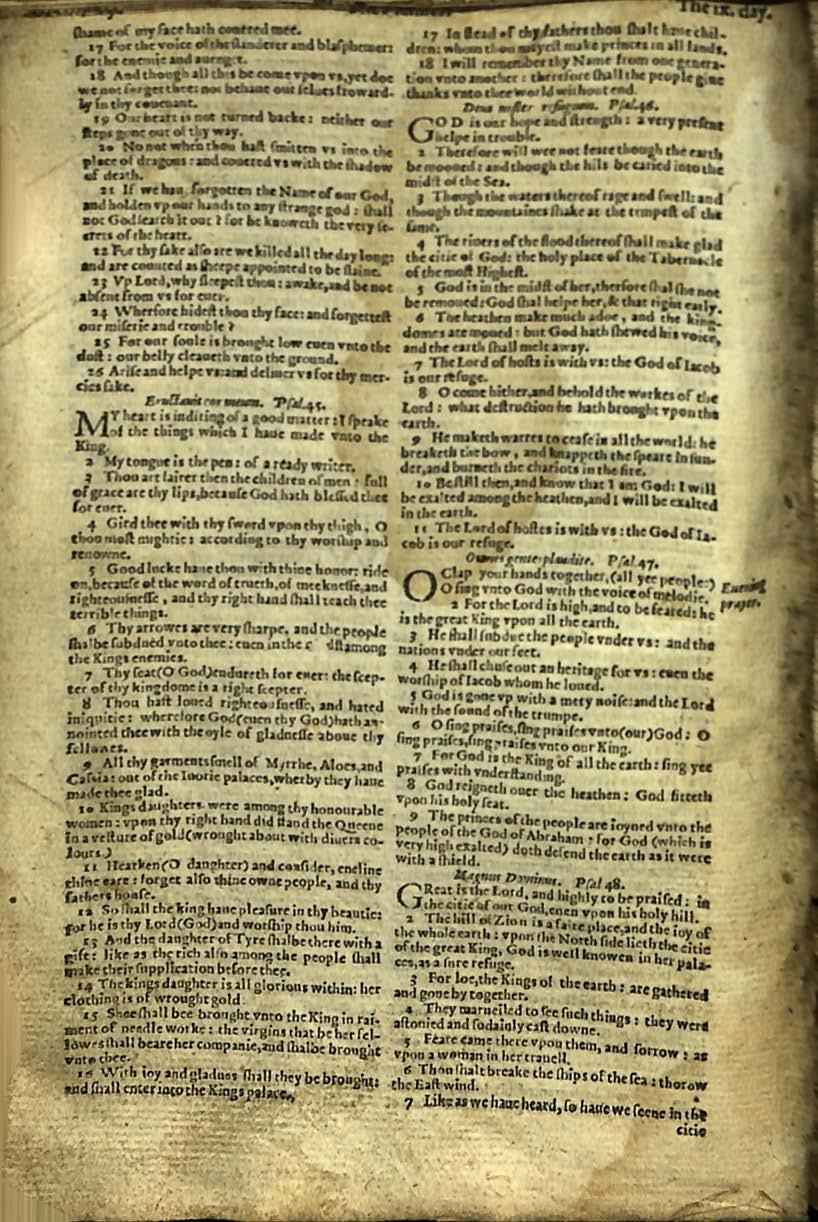 The ix. day.
shame of my face hath couered mee.
17 For the voice of the slanderer and blasphemer:
for the enemie and auenger.
18 And though all this be come vpon vs, yet doe
we not forget thee: nor behaue our selues froward-
ly in thy couenant.
19 Our heart is not turned backe: neither our
steps gone out of thy way.
20 No not when thou hast smitten vs into the
place of dragons: and couered vs with the shadow
of death.
21 If we haue forgotten the Name of our God,
and holden vp our hands to any strange god: shall
not God search it out? for he knoweth the very se-
crets of the heart.
22 For thy sake also are we killed all the day long:
and are counted as sheepe appointed to be slaine.
23 Vp Lord, why sleepest thou: awake, and be not
absent from vs for euer.
24 Wherfore hidest thou thy face: and forgettest
our miserie and trouble?
25 For our soule is brought low euen vnto the
dust: our belly cleaueth vnto the ground.
26 Arise and helpe vs: and deliuer vs for thy mer-
cies sake.
Eructauit cor meum. Psal.45.
MY heart is inditing of a good matter: I speake
of the things which I haue made vnto the
King.
2 My tongue is the pen: of a ready writer.
3 Thou art fairer then the children of men: full
of grace are thy lips, because God hath blessed thee
for euer.
4 Gird thee with thy sword vpon thy thigh, O
thou most mightie: according to thy worship and
renowne.
5 Good lucke haue thou with thine honor: ride
on, because of the word of trueth, of meeknesse, and
righteousnesse, and thy right hand shall teach thee
terrible things.
6 Thy arrowes are very sharpe, and the people
shalbe subdued vnto thee: euen in the dst among
the Kings enemies.
7 Thy seat (O God) endureth for euer: the scep-
ter of thy kingdome is a right scepter.
8 Thou hast loued righteousnesse, and hated
iniquitie: wherefore God (euen thy God) hath an-
nointed thee with the oyle of gladnesse aboue thy
fellowes.
9 All thy garments smell of Myrrhe, Aloes, and
Cassia: out of the Iuorie palaces, wherby they haue
made thee glad.
10 Kings daughters were among thy honourable
women: vpon thy right hand did stand the Queene
in a vesture of gold (wrought about with diuers co-
lours.)
11 Hearken (O daughter) and consider, encline
thine eare: forget also thine owne people, and thy
fathers house.
12 So shall the king haue pleasure in thy beautie:
for he is thy Lord (God) and worship thou him.
13 And the daughter of Tyre shalbe there with a
gift: like as the rich also among the people shall
make their supplication before thee.
14 The kings daughter is all glorious within: her
clothing is of wrought gold.
15 Shee shall bee brought vnto the King in rai-
ment of needle worke: the virgins that be her fel-
lowes shall beare her companie, and shalbe brought
vnto thee.
16 With ioy and gladnes shall they be brought:
and shall enter into the Kings palace.
17 In stead of thy fathers thou shalt haue chil-
dren: whom thou mayest make princes in all lands.
18 I will remember thy Name from one genera-
tion vnto another: therefore shall the people giue
thanks vnto thee world without end.
Deus noster refugium. Psal.46.
GOD is our hope and strength: a very present
helpe in trouble.
2 Therefore will wee not feare though the earth
be mooued: and though the hils be caried into the
midst of the Sea.
3 Though the waters thereof rage and swell: and
though the mountaines shake at the tempest of the
same.
4 The riuers of the flood thereof shall make glad
the citie of God: the holy place of the Tabernacle
of the most Highest.
5 God is in the midst of her, therfore shal she not
be remoued: God shal helpe her, & that right early.
6 The heathen make much adoe, and the king-
domes are moued: but God hath shewed his voice,
and the earth shall melt away.
7 The Lord of hosts is with vs: the God of Iacob
is our refuge.
8 O come hither, and behold the workes of the
Lord: what destruction he hath brought vpon the
earth.
9 He maketh warres to cease in all the world: he
breaketh the bow, and knappeth the speare in sun-
der, and burneth the chariots in the fire.
10 Be still then, and know that I am God: I will
be exalted among the heathen, and I will be exalted
in the earth.
11 The Lord of hostes is with vs: the God of Ia-
cob is our refuge.
Omnes gentes plaudite. Psal.47.
O Clap your hands together, (all yee people:)
O sing vnto God with the voice of melodie.
Euening
prayer.
2 For the Lord is high, and to be feared: he
is the great King vpon all the earth.
3 He shall subdue the people vnder vs: and the
nations vnder our feet.
4 He shall chuse out an heritage for vs: euen the
worship of Iacob whom he loued.
5 God is gone vp with a mery noise: and the Lord
with the sound of the trumpe.
6 O sing praises, sing praises vnto (our) God: O
sing praises, sing praises vnto our King.
7 For God is the King of all the earth: sing yee
praises with vnderstanding.
8 God reigneth ouer the heathen: God sitteth
vpon his holy seat.
9 The princes of the people are ioyned vnto the
people of the God of Abraham: for God (which is
very high exalted) doth defend the earth as it were
with a shield.
Magnus Dominus. Psal 48.
GReat is the Lord, and highly to be praised: in
the citie of our God, euen vpon his holy hill.
2 The hill of Zion is a faire place, and the ioy of
the whole earth: vpon the North side lieth the citie
of the great King, God is well knowen in her pala-
ces, as a sure refuge.
3 For loe, the Kings of the earth: are gathered
and gone by together.
4 They marueiled to see such things: they were
astonied and sodainly cast downe.
5 Feare came there vpon them, and sorrow: as
vpon a woman in her trauell.
6 Thou shalt breake the ships of the sea: thorow
the East wind.
7 Like as we haue heard, so haue we seene in the
citie